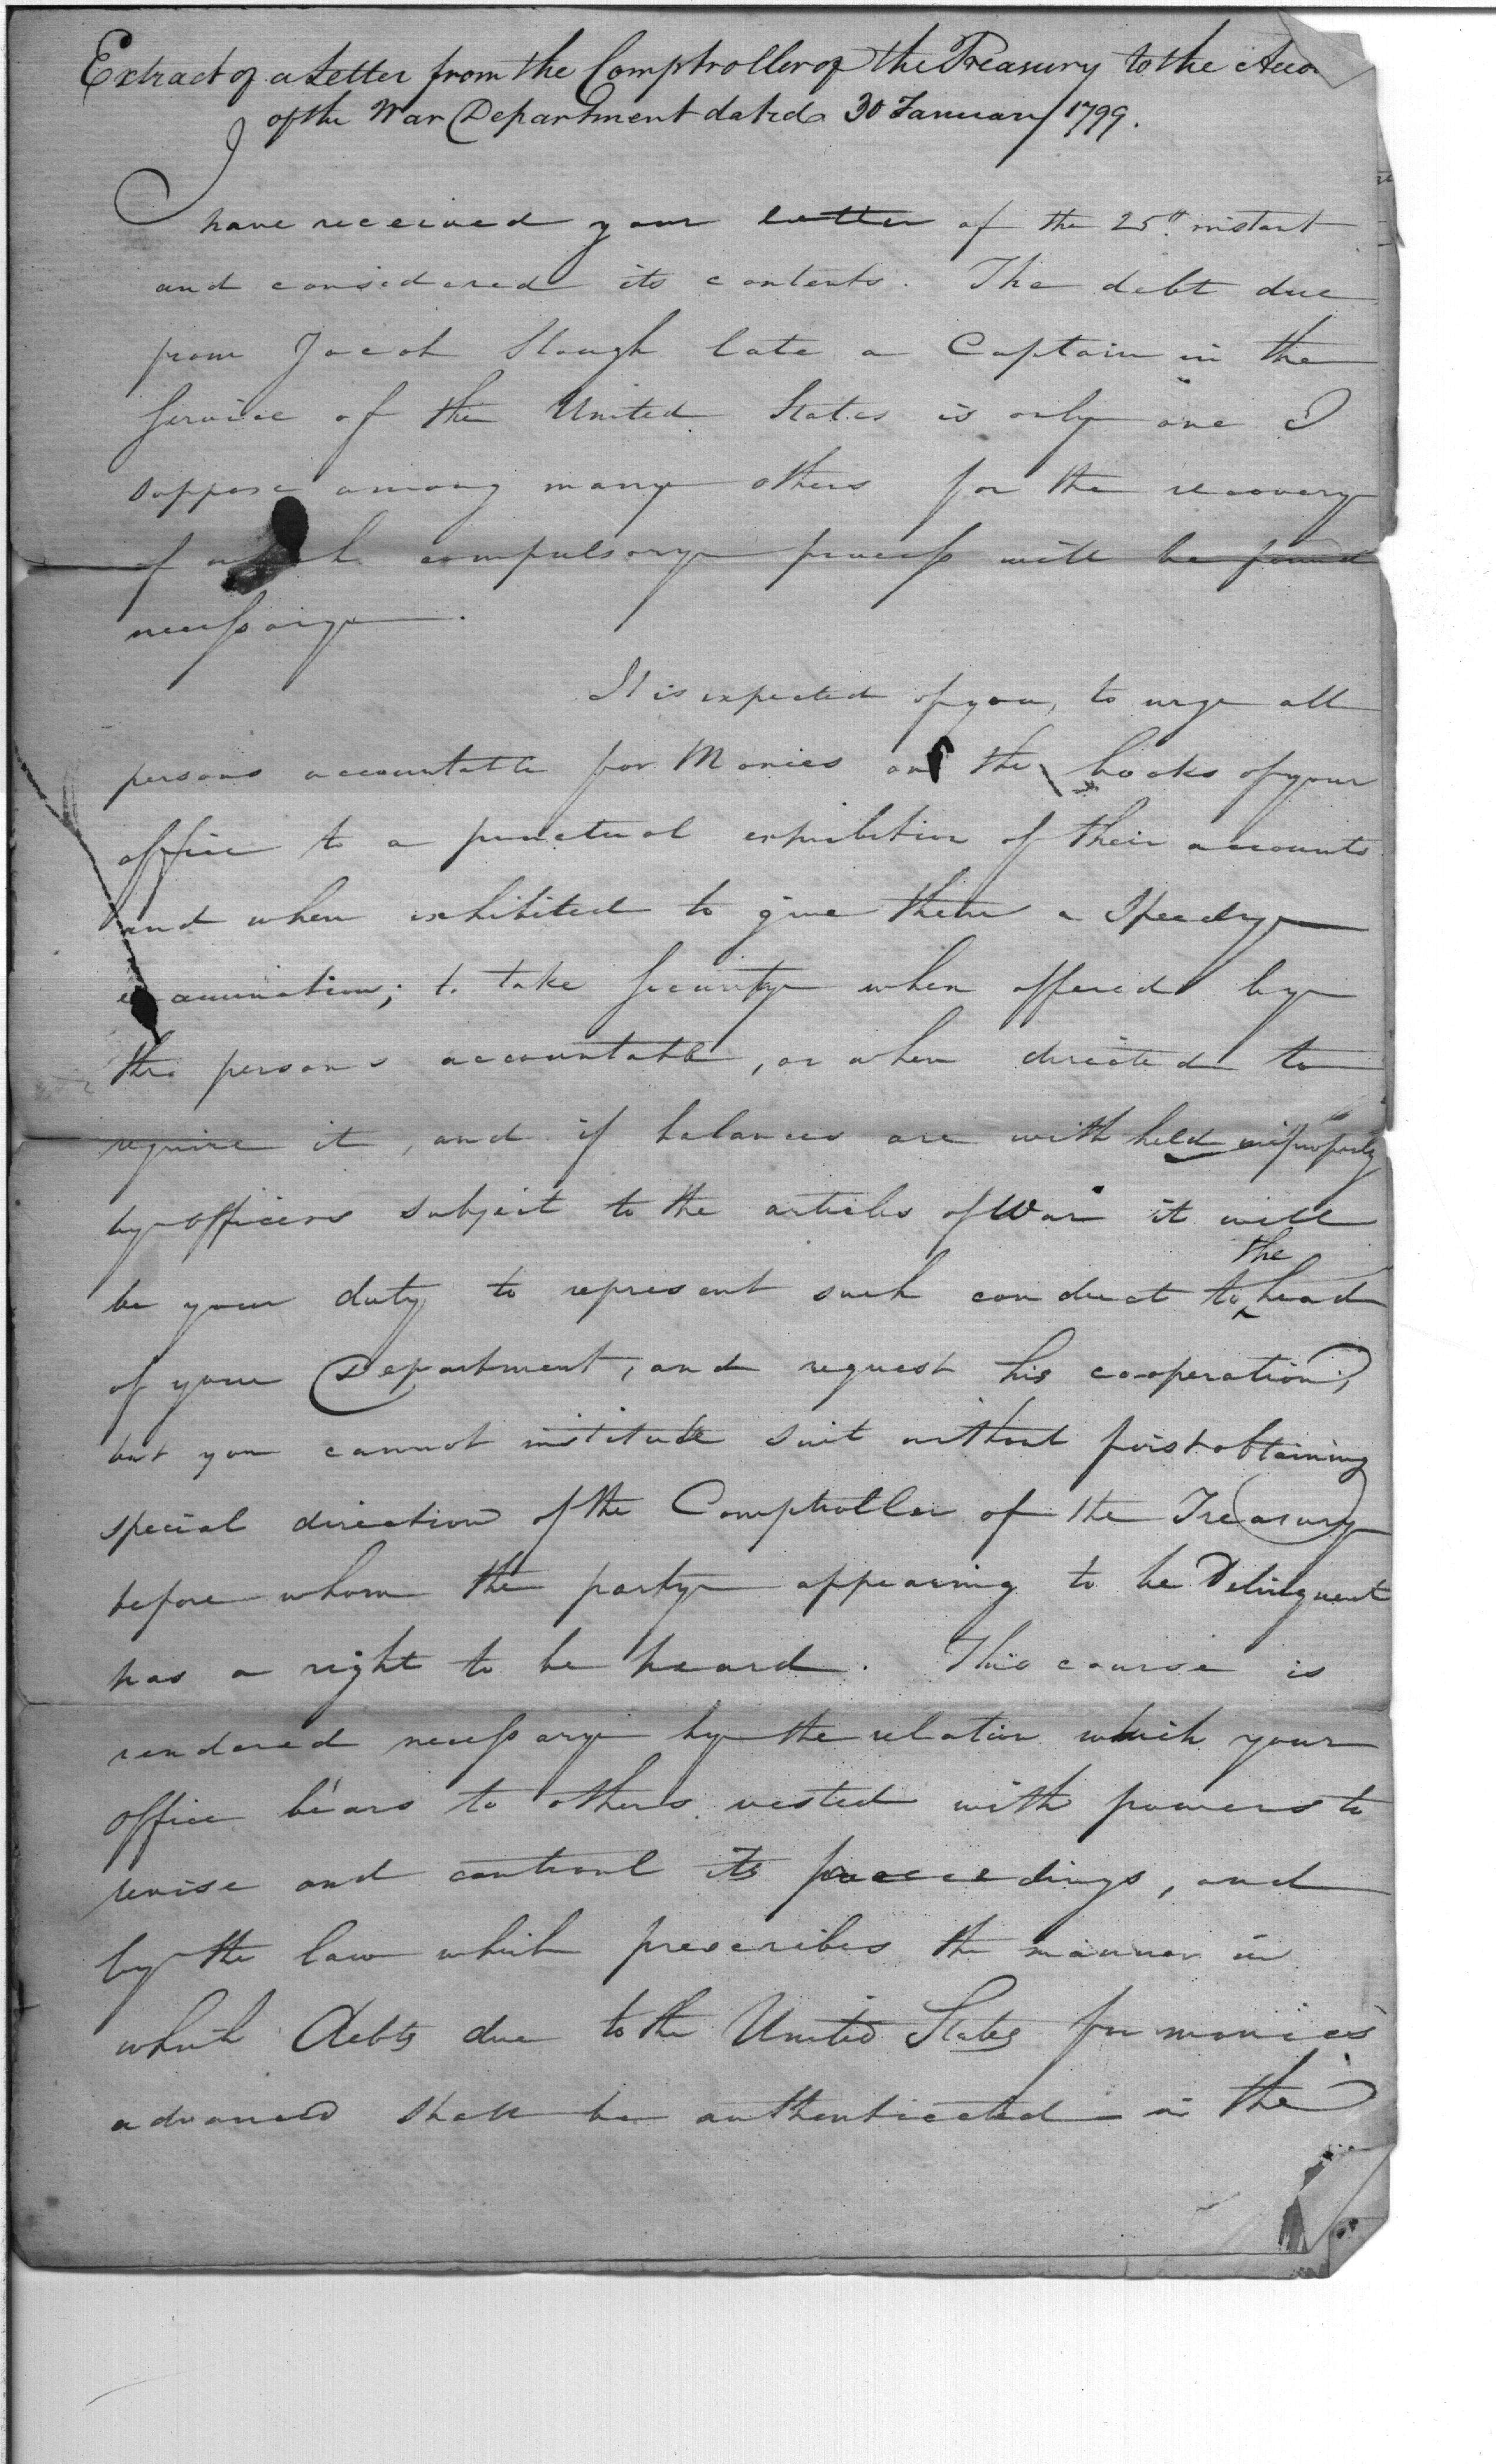 Extract of a Letter from the Comptroller of the Treasury to the Acco
of the War Department dated 30 January 1799.
I
have received your letter of the 25th instant
and considered its contents. The debt due
from Jacob Slough late a Captain in the
Service of the United States is only one I
suppose among many others for the recovery
of which compulsory process will be found
necessary.
It is expected of you, to urge all
persons accountable for Monies on the books of your
office to a punctual exhibition of their accounts
and when exhibited to give them a speedy
examination; to take security when offered by
the persons accountable, or when directed to
require it, and if balances are with held improperly
by officers subject to the articles of War it will
be your duty to represent such conduct to the head
of your Department, and request his cooperation,
but you cannot institute suit without first obtaining
special direction of the Comptroller of the Treasury
before whom the party appearing to be Delinquent
has a right to be heard. This course is
rendered necessary by the relation which your
office bears to others vested with powers to
revise and controul its proceedings, and
by the law which prescribes the manner in
which Debts due to the United States for monies
advanced shall be authenticated in the